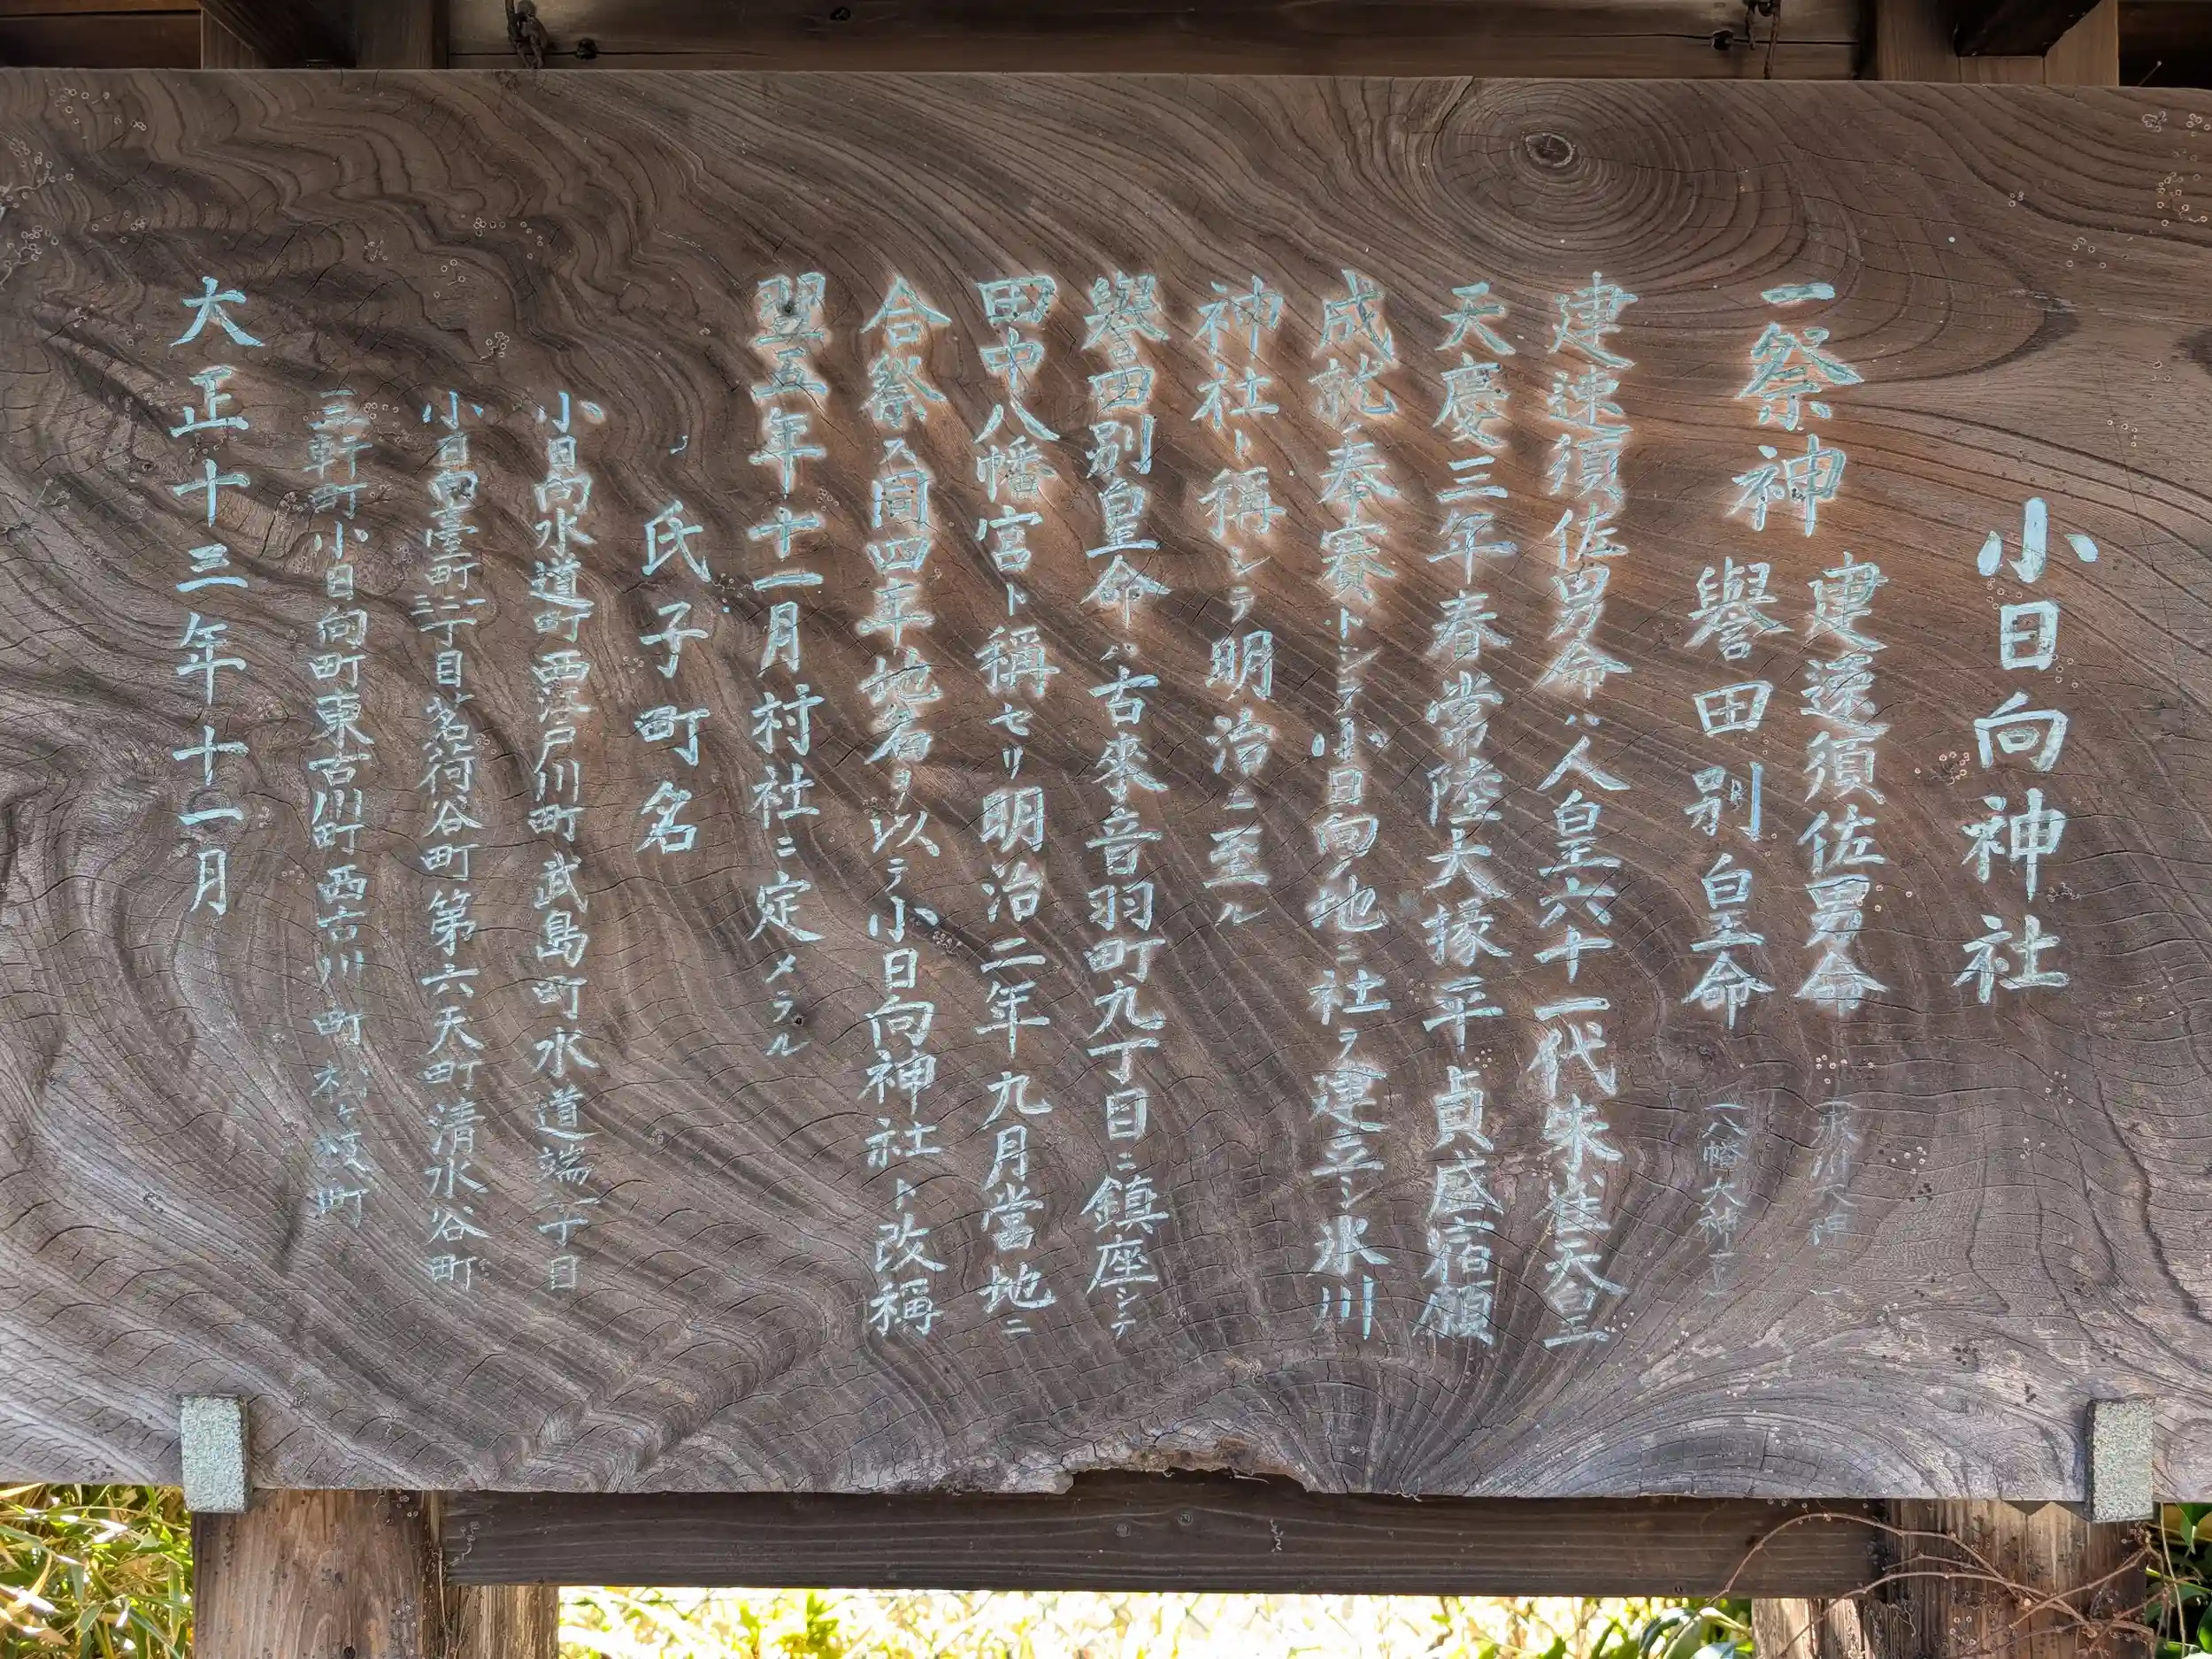 小日向神社
一祭神
建速須佐男命(氷川大神)
譽田別皇命(八幡大神)
建速須佐男命ハ人皇六十一代朱雀天皇
天慶三年春常陸大掾平貞盛宿願
成就奉賽トシテ小日向ノ地ニ社ヲ建立シ氷川
神社ト稱シテ明治ニ至ル
譽田別皇命ハ古來音羽町九丁目ニ鎮座シテ
田中八幡宮ト稱セリ明治二年九月當地ニ
合祭ス同四年地名ヲ以テ小日向神社ト改稱
翌五年十一月村社ニ定メラル
氏子町名
小日向水道町西江戸川町武島町水道端二丁目
小日向臺町一二三丁目茗荷谷町第六天町清水谷町
三軒町小日向町東古川町西古川町松ヶ枝町
大正十三年十一月